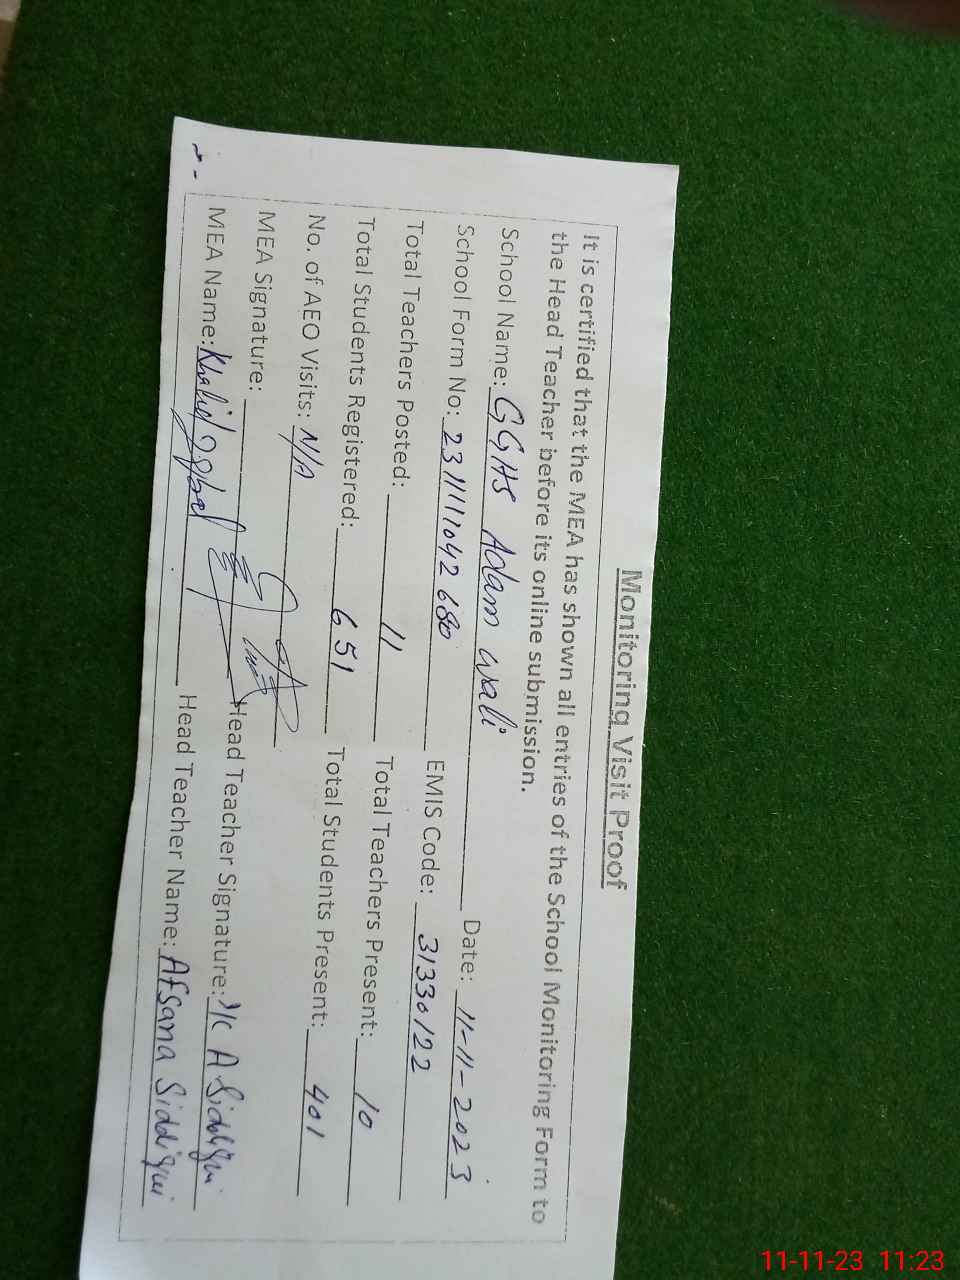 Monitoring Visit Proof
It is certified that the MEA has shown all entries of the School Monitoring Form to
the Head Teacher before its online submission.
School Name: GGHS Adam wali Date: 11-11-2023
School Form No: 231111042680 EMIS Code: 31330122
Total Teachers Posted: 11 Total Teachers Present: 10
Total Students Registered: 651 Total Students Present: 401
No. of AEO Visits: N/A
MEA Signature: Head Teacher Signature: A Siddiqui
MEA Name: Khalid Iqbal Head Teacher Name: Afsana Siddiqui
11-11-23 11:23